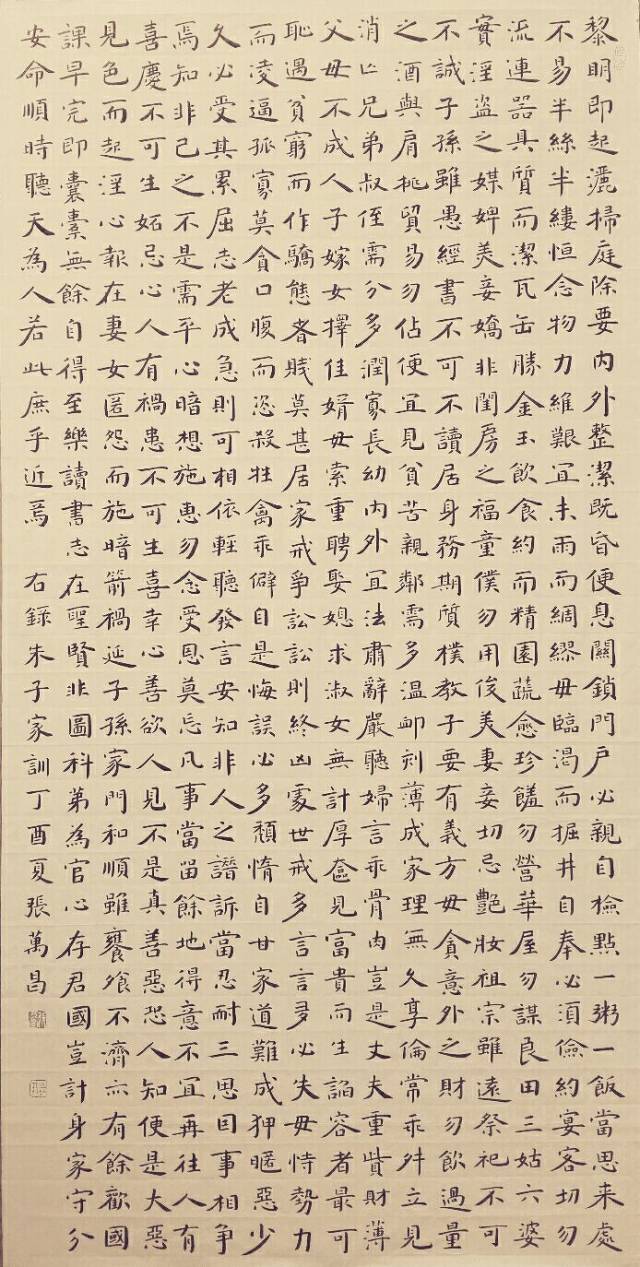 黎明即起灑掃庭除要內外整潔既昏便息關鎖門戶必親自檢點一粥一飯當思来處
不易半絲半縷恒念物力維艱宜未雨而綢繆毋臨渴而掘井自奉必須儉約宴客切勿
流連器具質而潔瓦缶勝金玉飲食約而精園蔬愈珍饈勿營華屋勿謀良田三姑六婆
實淫盜之媒婢美妾嬌非閨房之福童僕勿用俊美妻妾切忌艷妝祖宗雖遠祭祀不可
不誠子孫雖愚經書不可不讀居身務期質樸教子要有義方毋貪意外之財勿飲過量
之酒與肩挑貿易勿佔便宜見貧苦親鄰需多溫卹刻薄成家理無久享倫常乖舛立見
消亡兄弟叔侄需分多潤寡長幼內外宜法肅辭嚴聽婦言乖骨肉豈是丈夫重貲財薄
父母不成人子嫁女擇佳婿毋索重聘娶媳求淑女無計厚奩見富貴而生諂容者最可
恥遇貧窮而作驕態者賤莫甚居家戒爭訟訟則終凶處世戒多言言多必失毋恃勢力
而凌逼孤寡莫貪口腹而恣殺牲禽乖僻自是悔誤必多頹惰自甘家道難成狎暱惡少
久必受其累屈志老成急則可相依輕聽發言安知非人之譖訴當忍耐三思因事相爭
焉知非己之不是需平心暗想施惠勿念受恩莫忘凡事當留餘地得意不宜再往人有
喜慶不可生妬忌心人有禍患不可生喜幸心善欲人見不是真善惡恐人知便是大惡
見色而起淫心報在妻女匿怨而施暗箭禍延子孫家門和順雖饔飧不濟亦有餘歡國
課早完即囊橐無餘自得至樂讀書志在聖賢非圖科第為官心存君國豈計身家守分
安命順時聽天為人若此庶乎近焉 右錄朱子家訓丁酉夏張萬昌